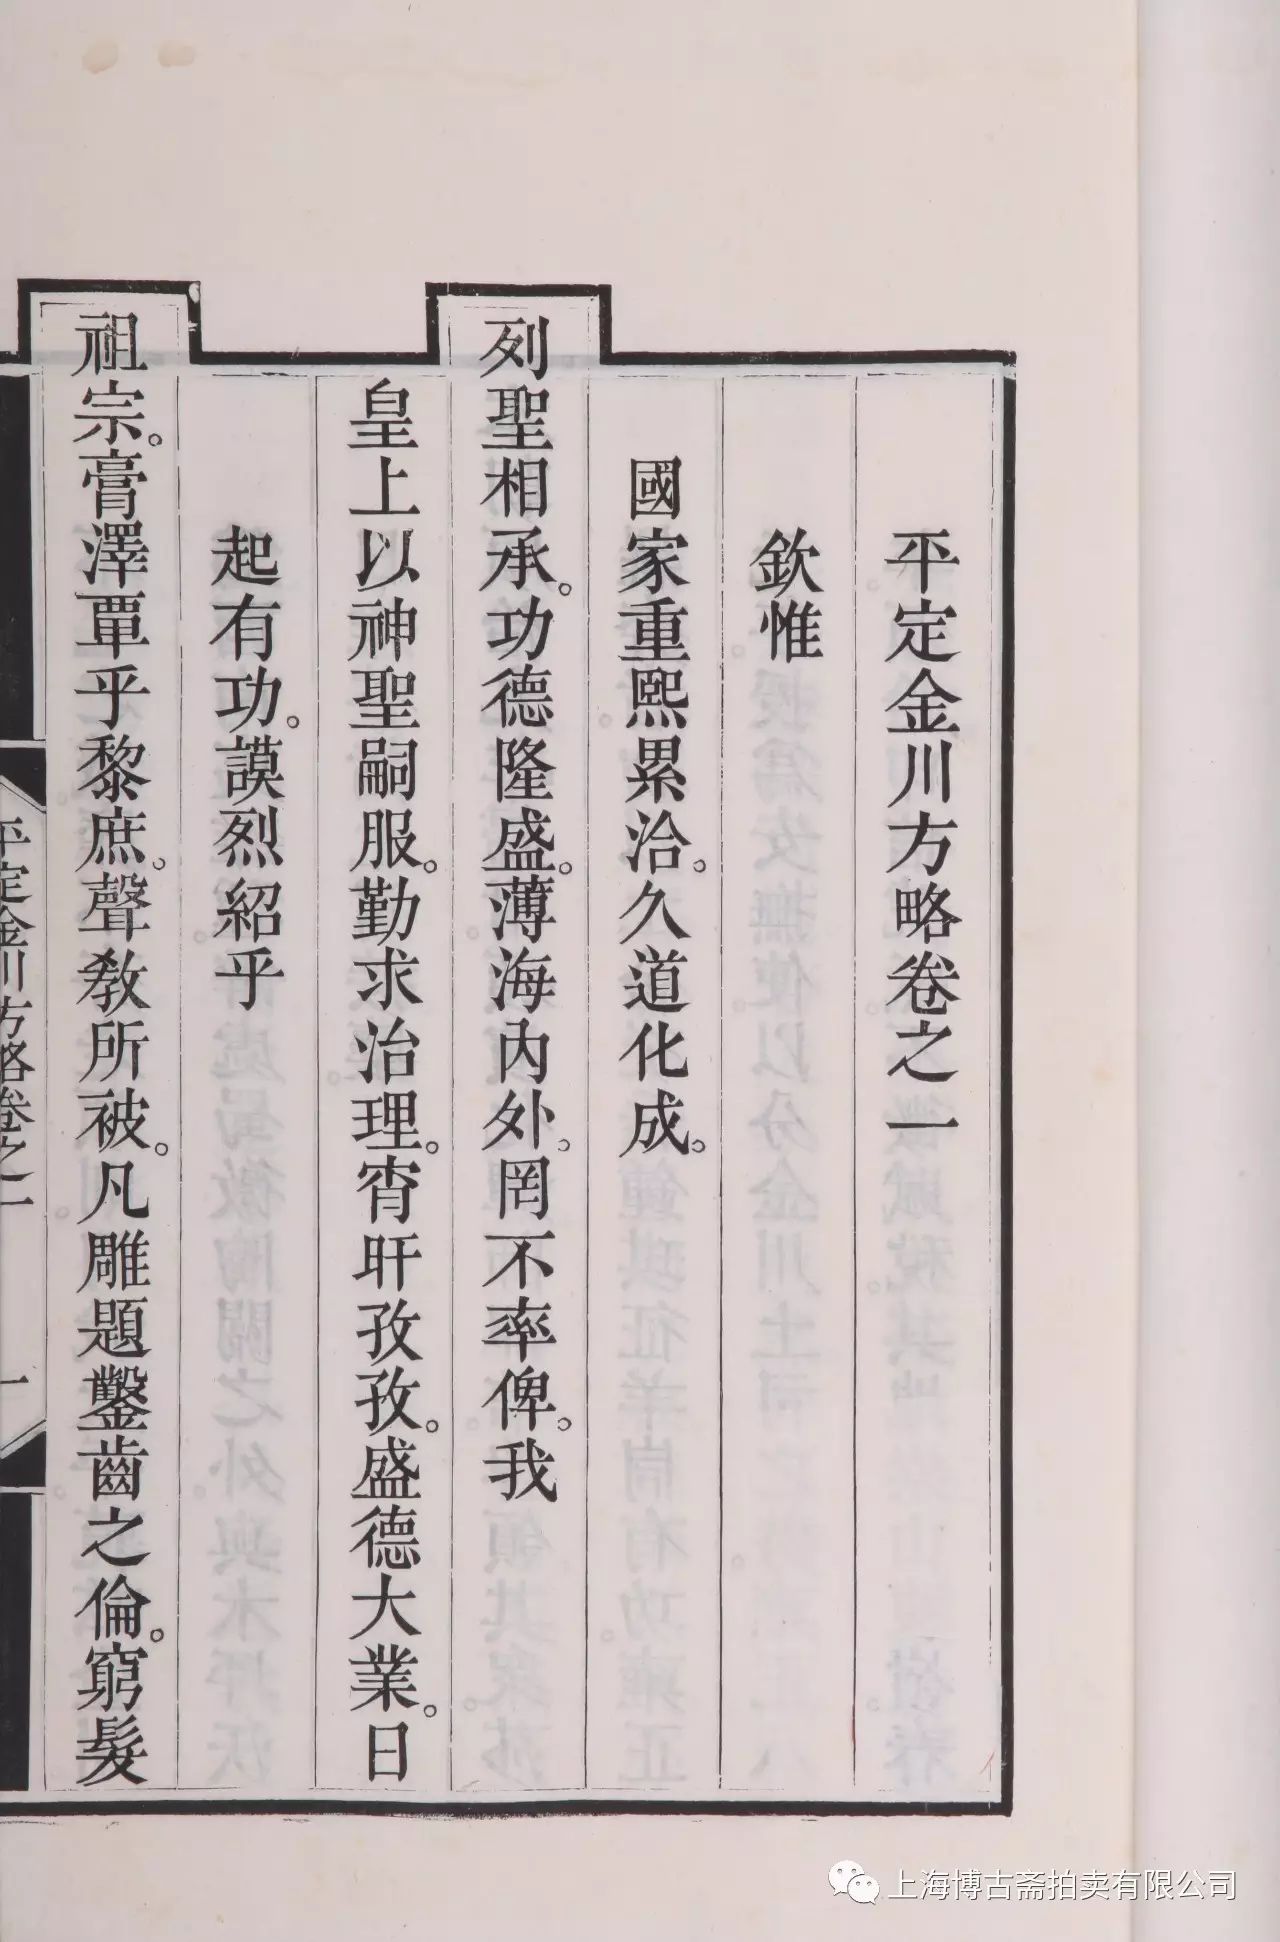 平定金川方略卷之一
欽惟
國家重熙累洽。久道化成。
列聖相承。功德隆盛。薄海內外。罔不率俾。我
皇上以神聖嗣服。勤求治理。宵旰孜孜。盛德大業。日
起有功。謨烈紹乎
祖宗。膏澤覃乎黎庶。聲教所被。凡雕題鑿齒之倫。窮髮
平定金川方略卷之一
一
上海博古斋拍卖有限公司